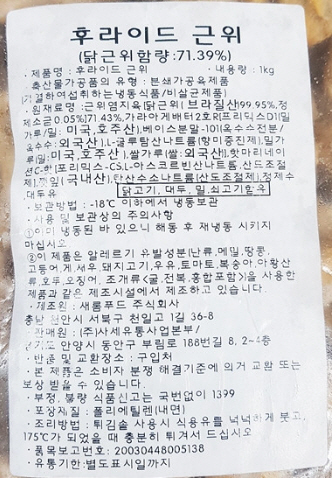 후라이드 근위
(닭근위함량:71.39%)
· 제품명 : 후라이드 근위 · 내용량 : 1kg
· 축산물가공품의 유형 : 분쇄가공육제품
(가열하여섭취하는냉동식품/비살균제품)
· 원재료명 :근위염지육[닭근위( 브라질산)99.95%,정
제소금0.05%]71.43%,가라아게배터2호R[프리믹스D1(밀
가루/밀: 미국,호주산),베이스분말-101(옥수수전분/
옥수수: 외국산),L-글루탐산나트륨(향미증진제),밀가
루(밀:미국,호주산 ),쌀가루(쌀:외국산)],핫마리네이
션C-핫(포리믹스-CS),아스코르빈산나트륨,산드조절
제),깻잎( 국내산),탄산수소나트륨(산도조절제),정제수
대두유 닭고기, 대두, 밀,쇠고기함유
· 보관방법 : -18℃ 이하에서 냉동보관
· 사용 및 보관상의 주의사항
①이미 냉동된 바 있으니 해동 후 재냉동 시키지
마십시오
②이 제품은 알레르기 유발성분(난류,메밀,땅콩,
고등어,게,새우,돼지고기,우유,토마토,복숭아,아황산
류,호두,오징어, 조개류(굴,전복,홍합포함)을 사용한
제품과 같은 제조시설에서 제조하고 있습니다.
· 제조시설 : 새롬푸드 주식회사
충남 천안시 서북구 천일고 1길 36-8
· 판매원 : (주)사세유통사업본부/
경기도 안양시 동안구 부림로 188번길 8, 2-4층
· 반품 및 교환장소 : 구입처
· 본 제품은 소비자 분쟁 해결기준에 의거 교환 또는
보상 받을 수 있습니다.
· 부정, 불량 식품신고는 국번없이 1399
· 포장재질 : 폴리에틸렌(내면)
· 조리방법 : 튀김솥 사용시 식용유를 넉넉하게 붓고,
175℃가 되었을 때 충분히 튀겨서 드십시오
· 품목보고번호 : 20030448005138
· 유통기한:별도표시일까지